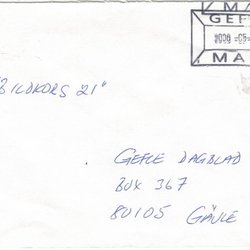 MA
GEF
2008-05-
MA
"BILDKORS 21"
GEFLE DAGBLAD
BOX 367
80105 GÄVLE